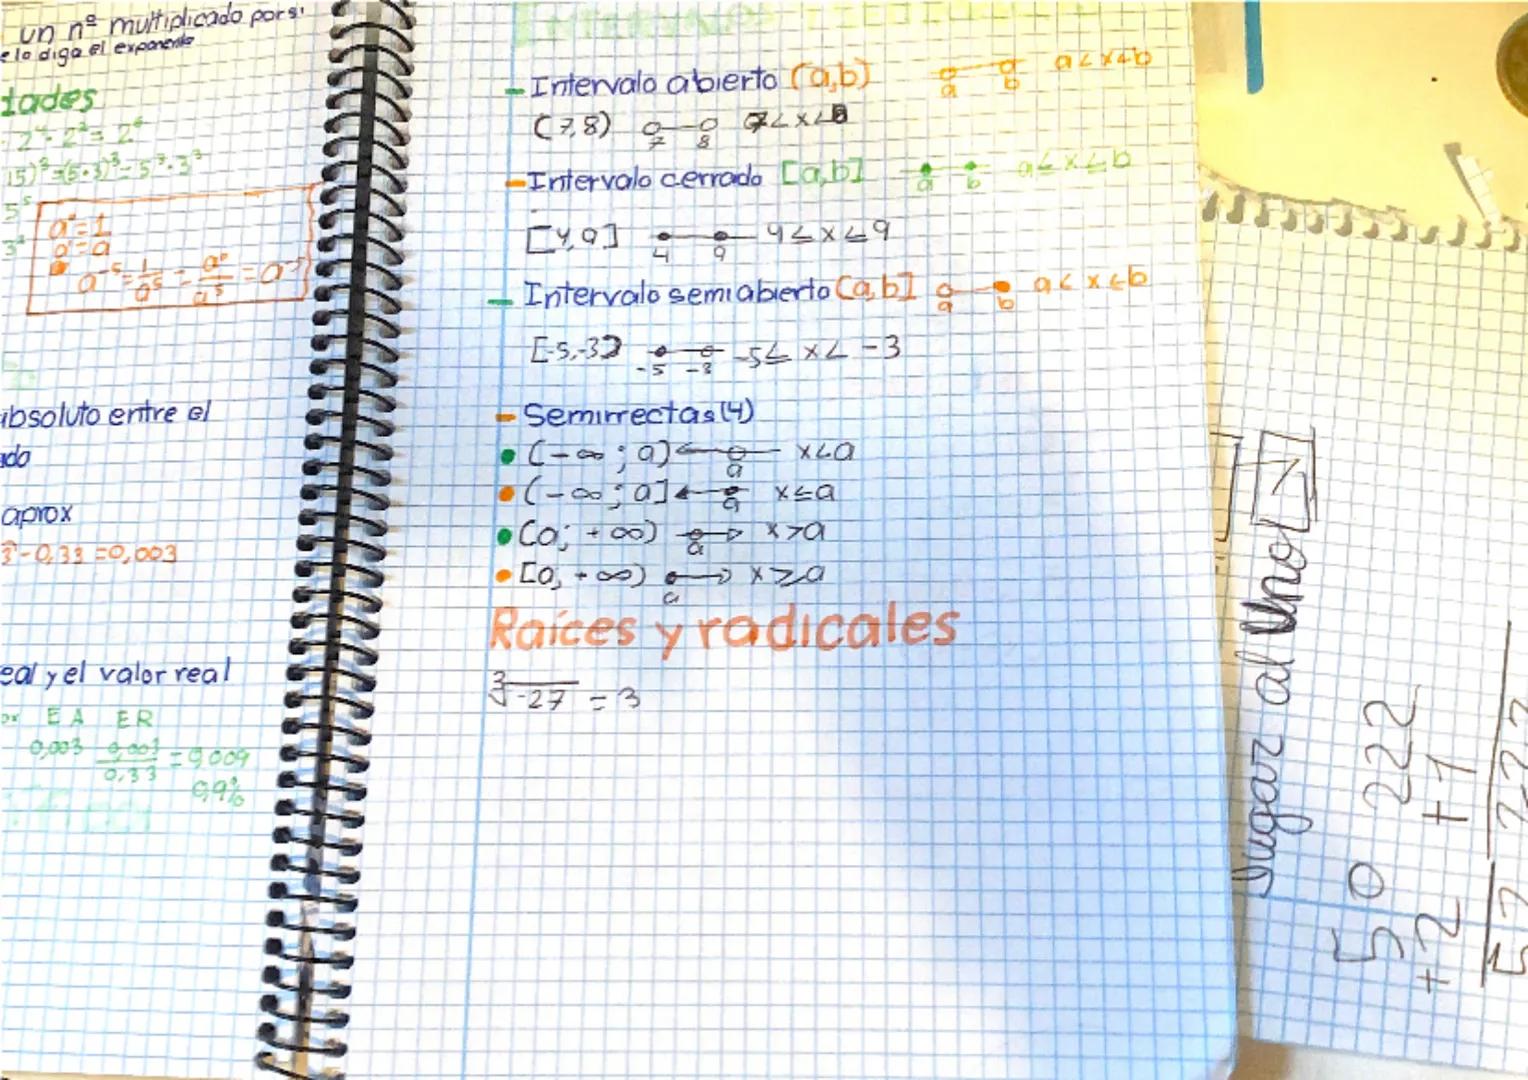 un nº multiplicado por si
e lo diga el exponente
dades
15)³=(5·3)³=5³·3³
5⁵
3²
a⁰=1
a¹=a
absoluto entre el
ado
aprox
3-0,33=0,003
eal y el valor real
EA ER
0,003 0,003/0,33 = 0,009
0,9%
INTERVALOS
- Intervalo abierto (a,b) a b a<x<b
(7,8) 7 8 7<x<8
- Intervalo cerrado [a,b] a b a≤x≤b
[4,9] 4 9 4≤x≤9
- Intervalo semiabierto (a,b] a b a<x≤b
[-5,-3) -5 -3 -5≤x<-3
- Semirrectas (4)
• (-∞; a) a x<a
• (-∞; a] a x≤a
• (a; +∞) a x>a
• [a, +∞) a x≥a
Raíces y radicales
³√-27 = 3
Jugar al Uno
50 222
+2 +1